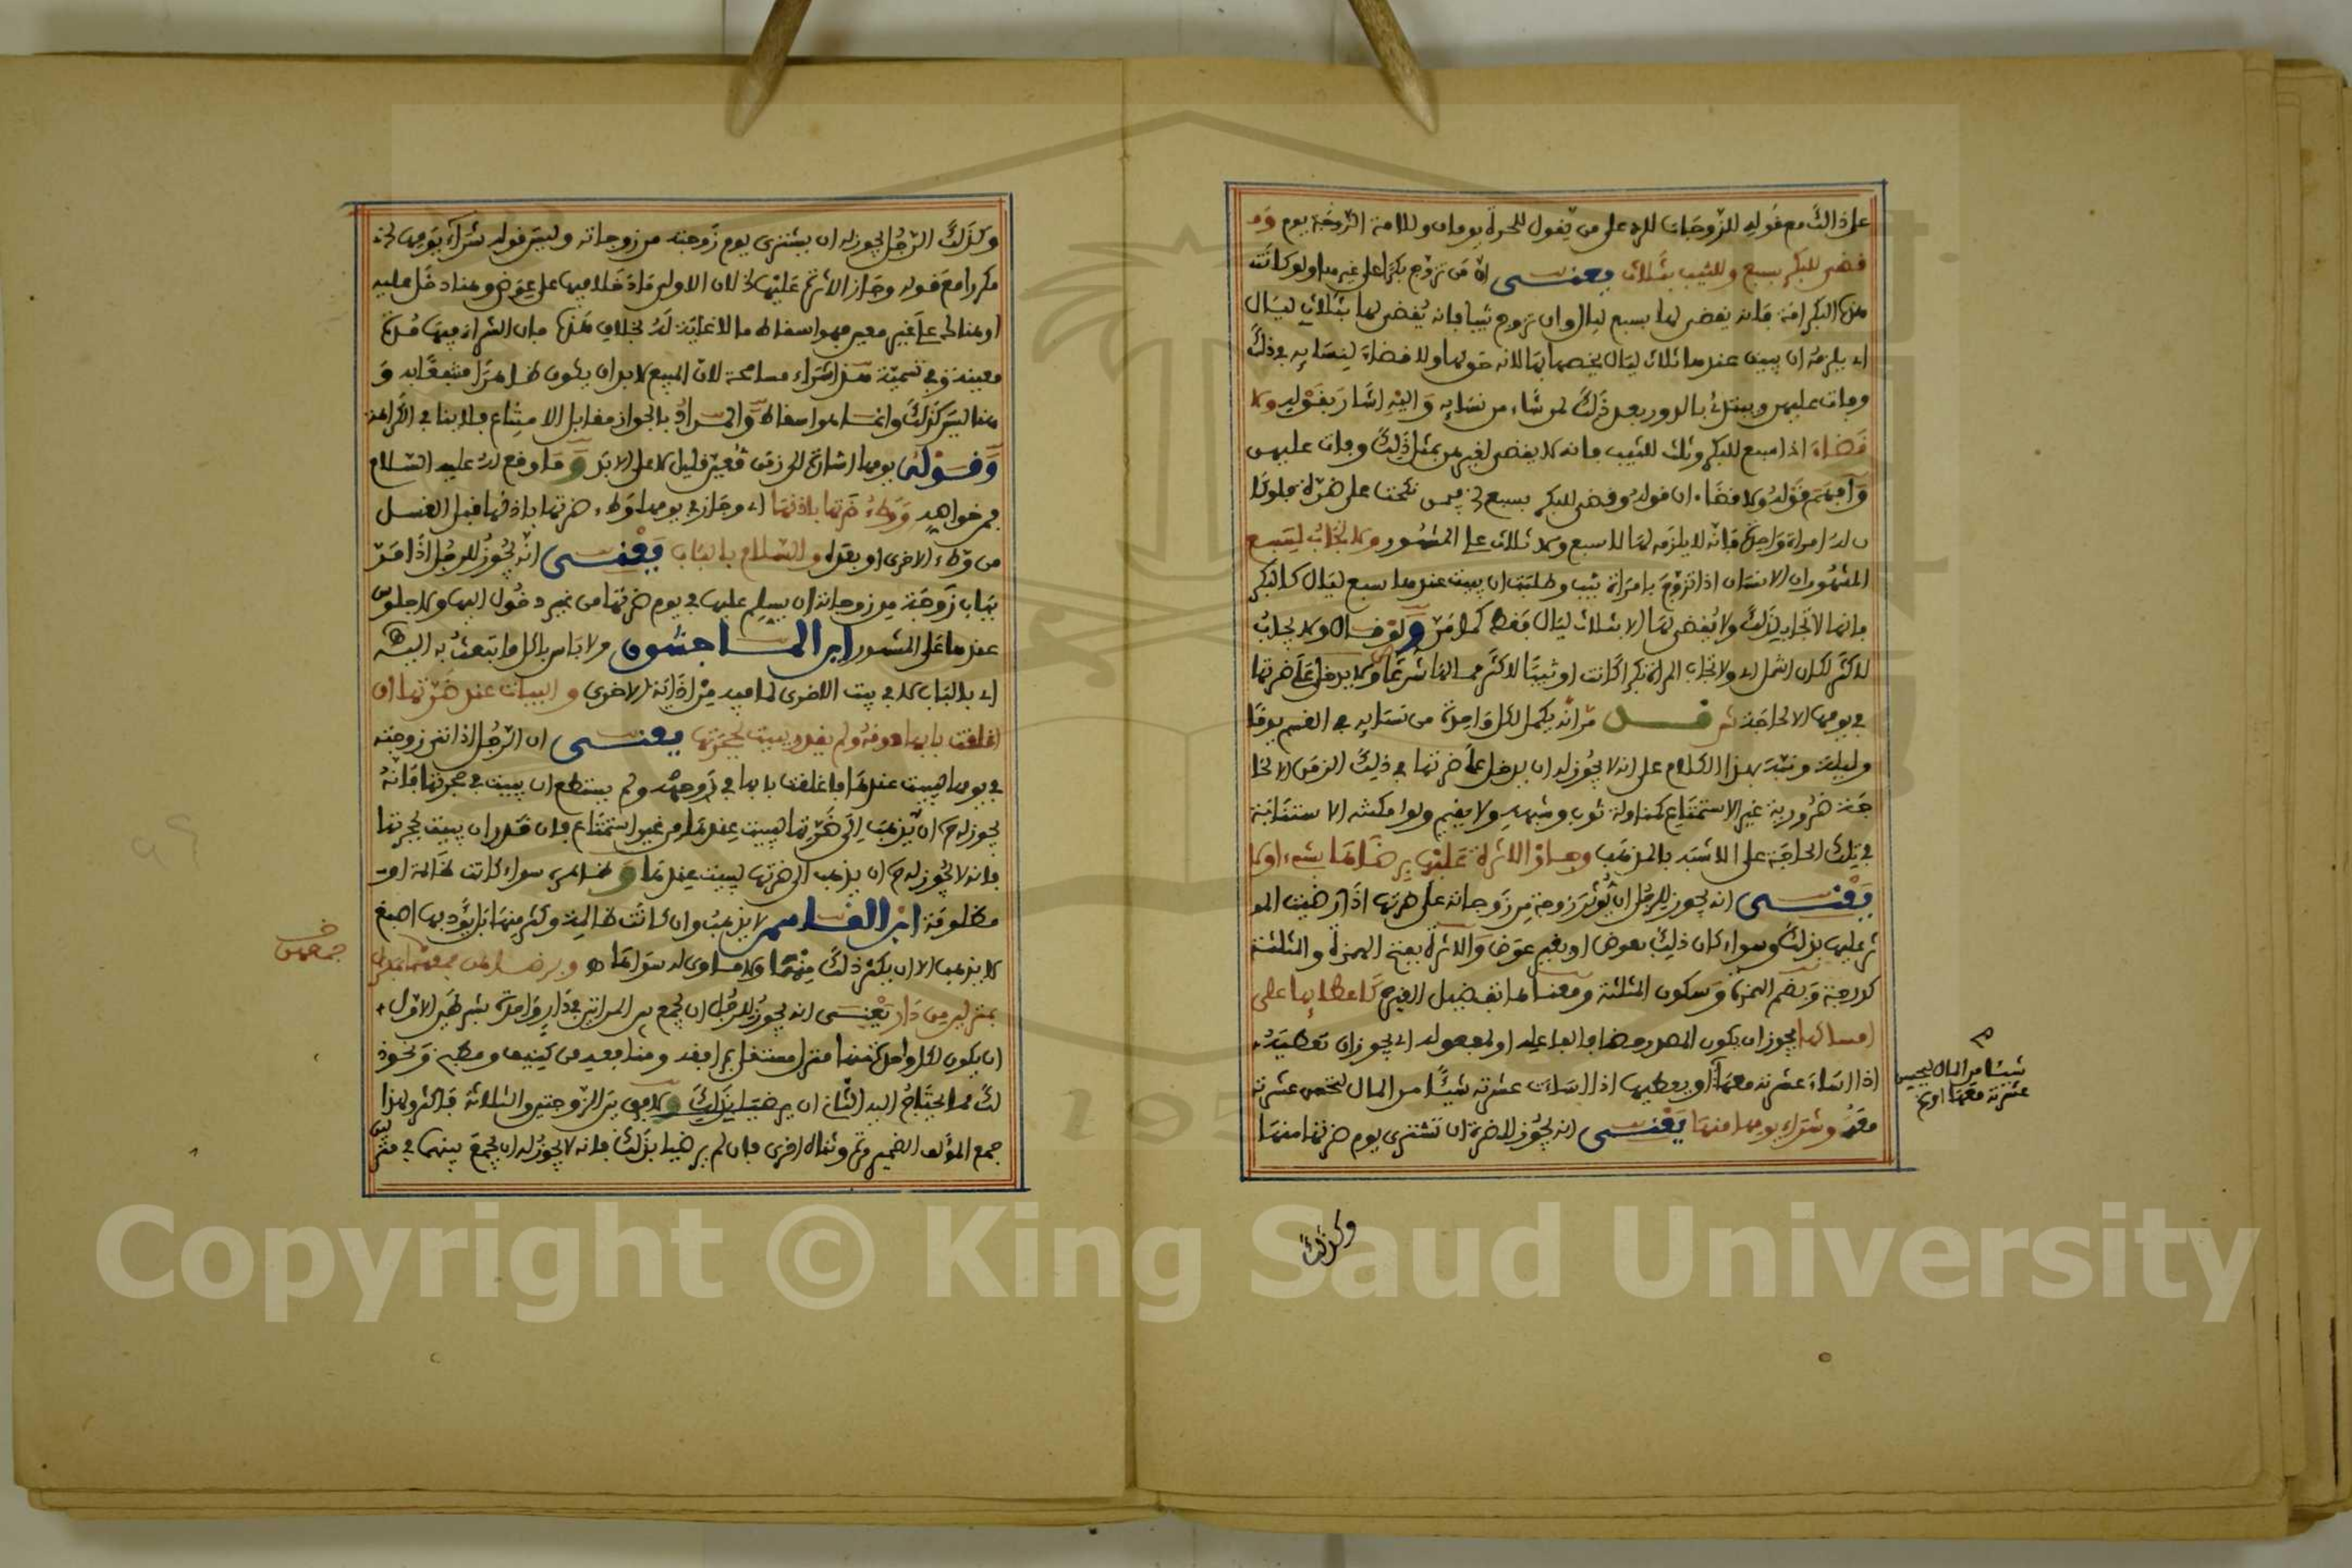 على ذالك مع قوله للزوجات للرد على من يقول للحرة يومان وللامة الزوجة يوم وقد
قضى للبكر بسبع وللثيب بثلاث يعنى ان من تزوج بكرا على غيرها ولو كانت
هذه البكر امة فانه يقضى لها بسبع ليال وان تزوج ثيبا فانه يقضى لها بثلاث ليال
اى يلزمه ان يبيت عندها ثلاث ليال يخصها بها لانه حق لها ولا قضاء لنسايه فى ذلك
وفات عليهن ويبتدئ بالدور بعد ذلك لمن شاء من نسايه واليه اشار بقوله ولا
قضاء اذا سبع للبكر وثلث للثيب فانه لا يقضى لغيرهن بمثل ذلك وفات عليهن
وافهم قوله ولا قضاء ان قوله وقضى للبكر بسبع فيمن نكحت على ضرة فلو كا
ن له امراة واحدة فانه لا يلزمه لها لا سبع ولا ثلاث على المشهور ولا تجاب لسبع
المشهور ان الانسان اذا تزوج بامراة ثيب وطلبت ان يبيت عندها سبع ليال كالبكر
فانها لا تجاب لذلك ولا يقضى لها الا بثلاث ليال فقط كما مر ولو قال ولا تجاب
لاكثر لكان اشمل اى ولا تجاب المراة بكرا كانت او ثيبا لاكثر مما لها شرعا ولا يدخل على ضرتها
فى يومها الا لحاجة ش قد مر انه يكمل لكل واحدة من نسايه فى القسم يوما
وليلة ونبه بهذا الكلام على انه لا يجوز له ان يدخل على ضرتها فى ذلك الزمن الا لحا
جة ضرورية غير الاستمتاع كمناولة ثوب وشبهه ولا يقيم ولو امكنه الاستنابة
فى تلك الحاجة على الاشبه بالمذهب وجاز الاثرة عليها برضاها بشىء او لا
يعنى انه يجوز للرجل ان يؤثر زوجة من زوجاته على ضرتها اذا رضيت المو
ثر عليها بذلك وسواء كان ذلك بعوض او بغير عوض والاثرة بفتح الهمزة والمثلثة
كدرجة وبضم الهمزة وسكون المثلثة ومعناها تفضيل الغير كاعطايها على
امساكها يجوز ان يكون المصدر مضافا لفاعله او لمفعوله اى يجوز ان تعطيه
اذا اساء عشرته معها او يعطيها اذا اساءت عشرته شيئا من المال لتحسن عشرته
معه وشراء يومها منها يعنى انه يجوز للضرة ان تشترى يوم ضرتها منها
شيئا من المال ليحسن
عشرته معها او
وكذلك
وكذلك الرجل يجوز له ان يشترى يوم زوجته من زوجاته وليس قوله شراء يومها
مكررا مع قوله وجاز الاثرة عليها لان الاولى مادة خلا فيها على عوض وهنا دخلا عليه
او هناك على غير معين فهو اسقاط ما لا غاية له بخلاف هذه فان الشراء فيها مدة
معينة وفى تسمية هذا شراء مسامحة لان المبيع لابد ان يكون ظاهرا منتفعا به و
هنا ليس كذلك وانما هو اسقاط والمراد بالجواز مقابل الامتناع فلا ينافى الكراهة
وقوله يومها اشارة الى زمن معين قليل لا على الابد وما وقع له عليه السلام
فمن خواصه ووطء ضرتها باذنها اى وجاز فى يومها وطء ضرتها باذنها قبل الغسل
من وطء الاخرى او بعده والسلام بالباب يعنى انه يجوز للرجل اذا مر
بباب زوجة من زوجاته ان يسلم عليها فى يوم ضرتها من غير دخول اليها ولا جلوس
عندها على المشهور ابن الماجشون ولا باس باكل ما تبعث به اليه
اى بالباب لا فى بيت الاخرى لما فيه من اذاية الاخرى والبيات عند ضرتها ان
اغلقت بابها دونه ولم يقدر يبيت بحجرتها يعنى ان الرجل اذا اتى زوجته
فى يومها ليبيت عندها فاغلقت بابها فى وجهه ولم يستطع ان يبيت فى حجرتها فانه
يجوز له ح ان يذهب الى ضرتها ليبيت عندها من غير استمتاع فان قدر ان يبيت بحجرتها
فانه لا يجوز له ح ان يذهب الى ضرتها ليبيت عندها وظاهره سواء كانت ظالمة او
مظلومة ابن القاسم لا يذهب وان كانت ظالمة وكثر منها بل يؤدبها اصبغ
لا يذهب الا ان يكثر ذلك منها ولا ماوى له سواها وبرضاهن جمعهما
بمنزلين من دار يعنى انه يجوز للرجل ان يجمع بين المراتين فى دار واحدة بشرطين الاول
ان يكون لكل واحدة منهما منزل مستقل بمرافقه ومنافعه من كنيف ومطبخ ونحو ذ
لك مما يحتاج اليه الثانى ان يرضيا بذلك ولا فرق بين الزوجتين والثلاثة فاكثر ولهذا
جمع المؤلف الضمير مرة وثناه اخرى فان لم يرضيا بذلك فانه لا يجوز له ان يجمع بينهما فى منز